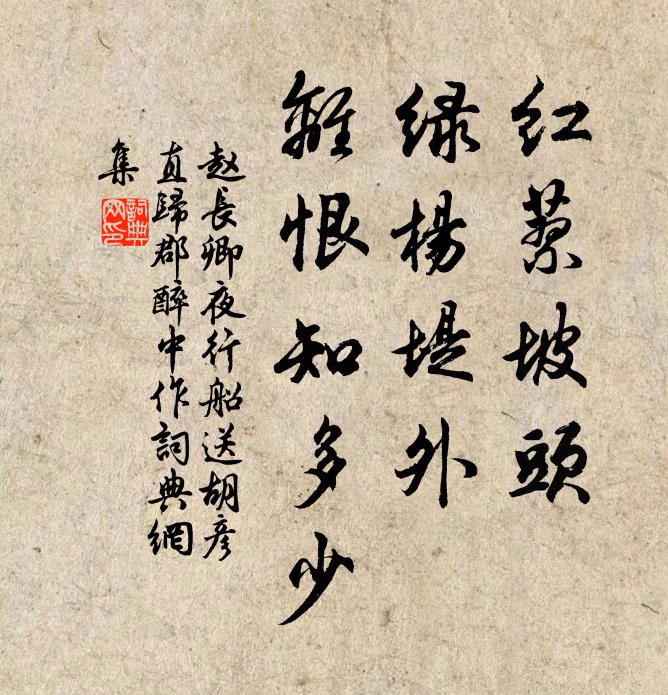 红蓼坡頭
绿楊堤外
離恨知多少
赵長卿夜行船送胡彦
直歸郡醉中作詞典網
集
詞典
网印